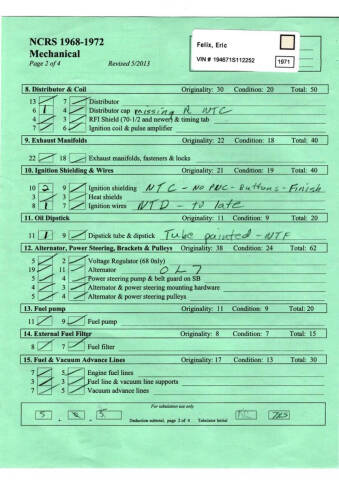 NCRS 1968-1972
Mechanical
Page 2 of 4 Revised 5/2013
Felix, Eric
VIN # 194671S112252 1971
8. Distributor & Coil Originality: 30 Condition: 20 Total: 50
13 7 Distributor
6 1 4 Distributor cap missing R NTC
4 3 RFI Shield (70-1/2 and newer) & timing tab
7 6 Ignition coil & pulse amplifier
9. Exhaust Manifolds Originality: 22 Condition: 18 Total: 40
22 18 Exhaust manifolds, fasteners & locks
10. Ignition Shielding & Wires Originality: 21 Condition: 19 Total: 40
10 2 9 Ignition shielding NTC - NO PNC - Buttons - Finish
3 3 Heat shields
8 1 7 Ignition wires NTD - to late
11. Oil Dipstick Originality: 11 Condition: 9 Total: 20
11 1 9 Dipstick tube & dipstick Tube painted - NTF
12. Alternator, Power Steering, Brackets & Pulleys Originality: 38 Condition: 24 Total: 62
5 2 Voltage Regulator (68 0nly)
19 11 Alternator OL7
5 4 Power steering pump & belt guard on SB
4 3 Alternator & power steering mounting hardware
5 4 Alternator & power steering pulleys
13. Fuel pump Originality: 11 Condition: 9 Total:20
11 9 Fuel pump
14. External Fuel Filter Originality: 8 Condition: 7 Total: 15
8 7 Fuel filter
15. Fuel & Vacuum Advance Lines Originality: 17 Condition: 13 Total: 30
7 5 Engine fuel lines
3 3 Fuel line & vacuum line supports
7 5 Vacuum advance lines
For tabulation use only
5 . . 5
Deduction subtotal, page 2 of 4 Tabulator Initial